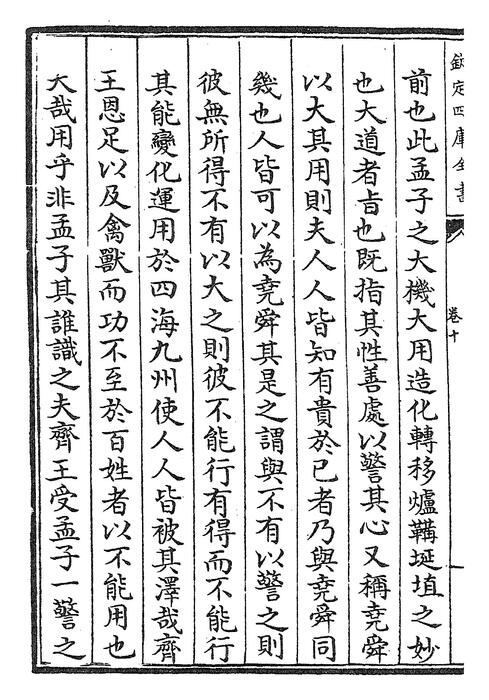 欽定四庫全書
卷十
前也此孟子之大機大用造化轉移爐鞴埏埴之妙
也大道者㫖也既指其性善處以警其心又稱堯舜
以大其用則夫人人皆知有貴於已者乃與堯舜同
幾也人皆可以為堯舜其是之謂與不有以警之則
彼無所得不有以大之則彼不能行有得而不能行
其能變化運用於四海九州使人人皆被其澤哉齊
王恩足以及禽獸而功不至於百姓者以不能用也
大哉用乎非孟子其誰識之夫齊王受孟子一警之